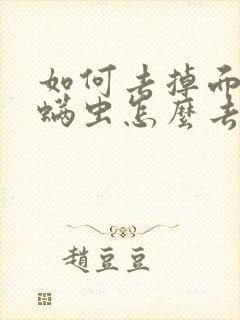 如何去掉而
螨虫怎麼去
趙豆豆